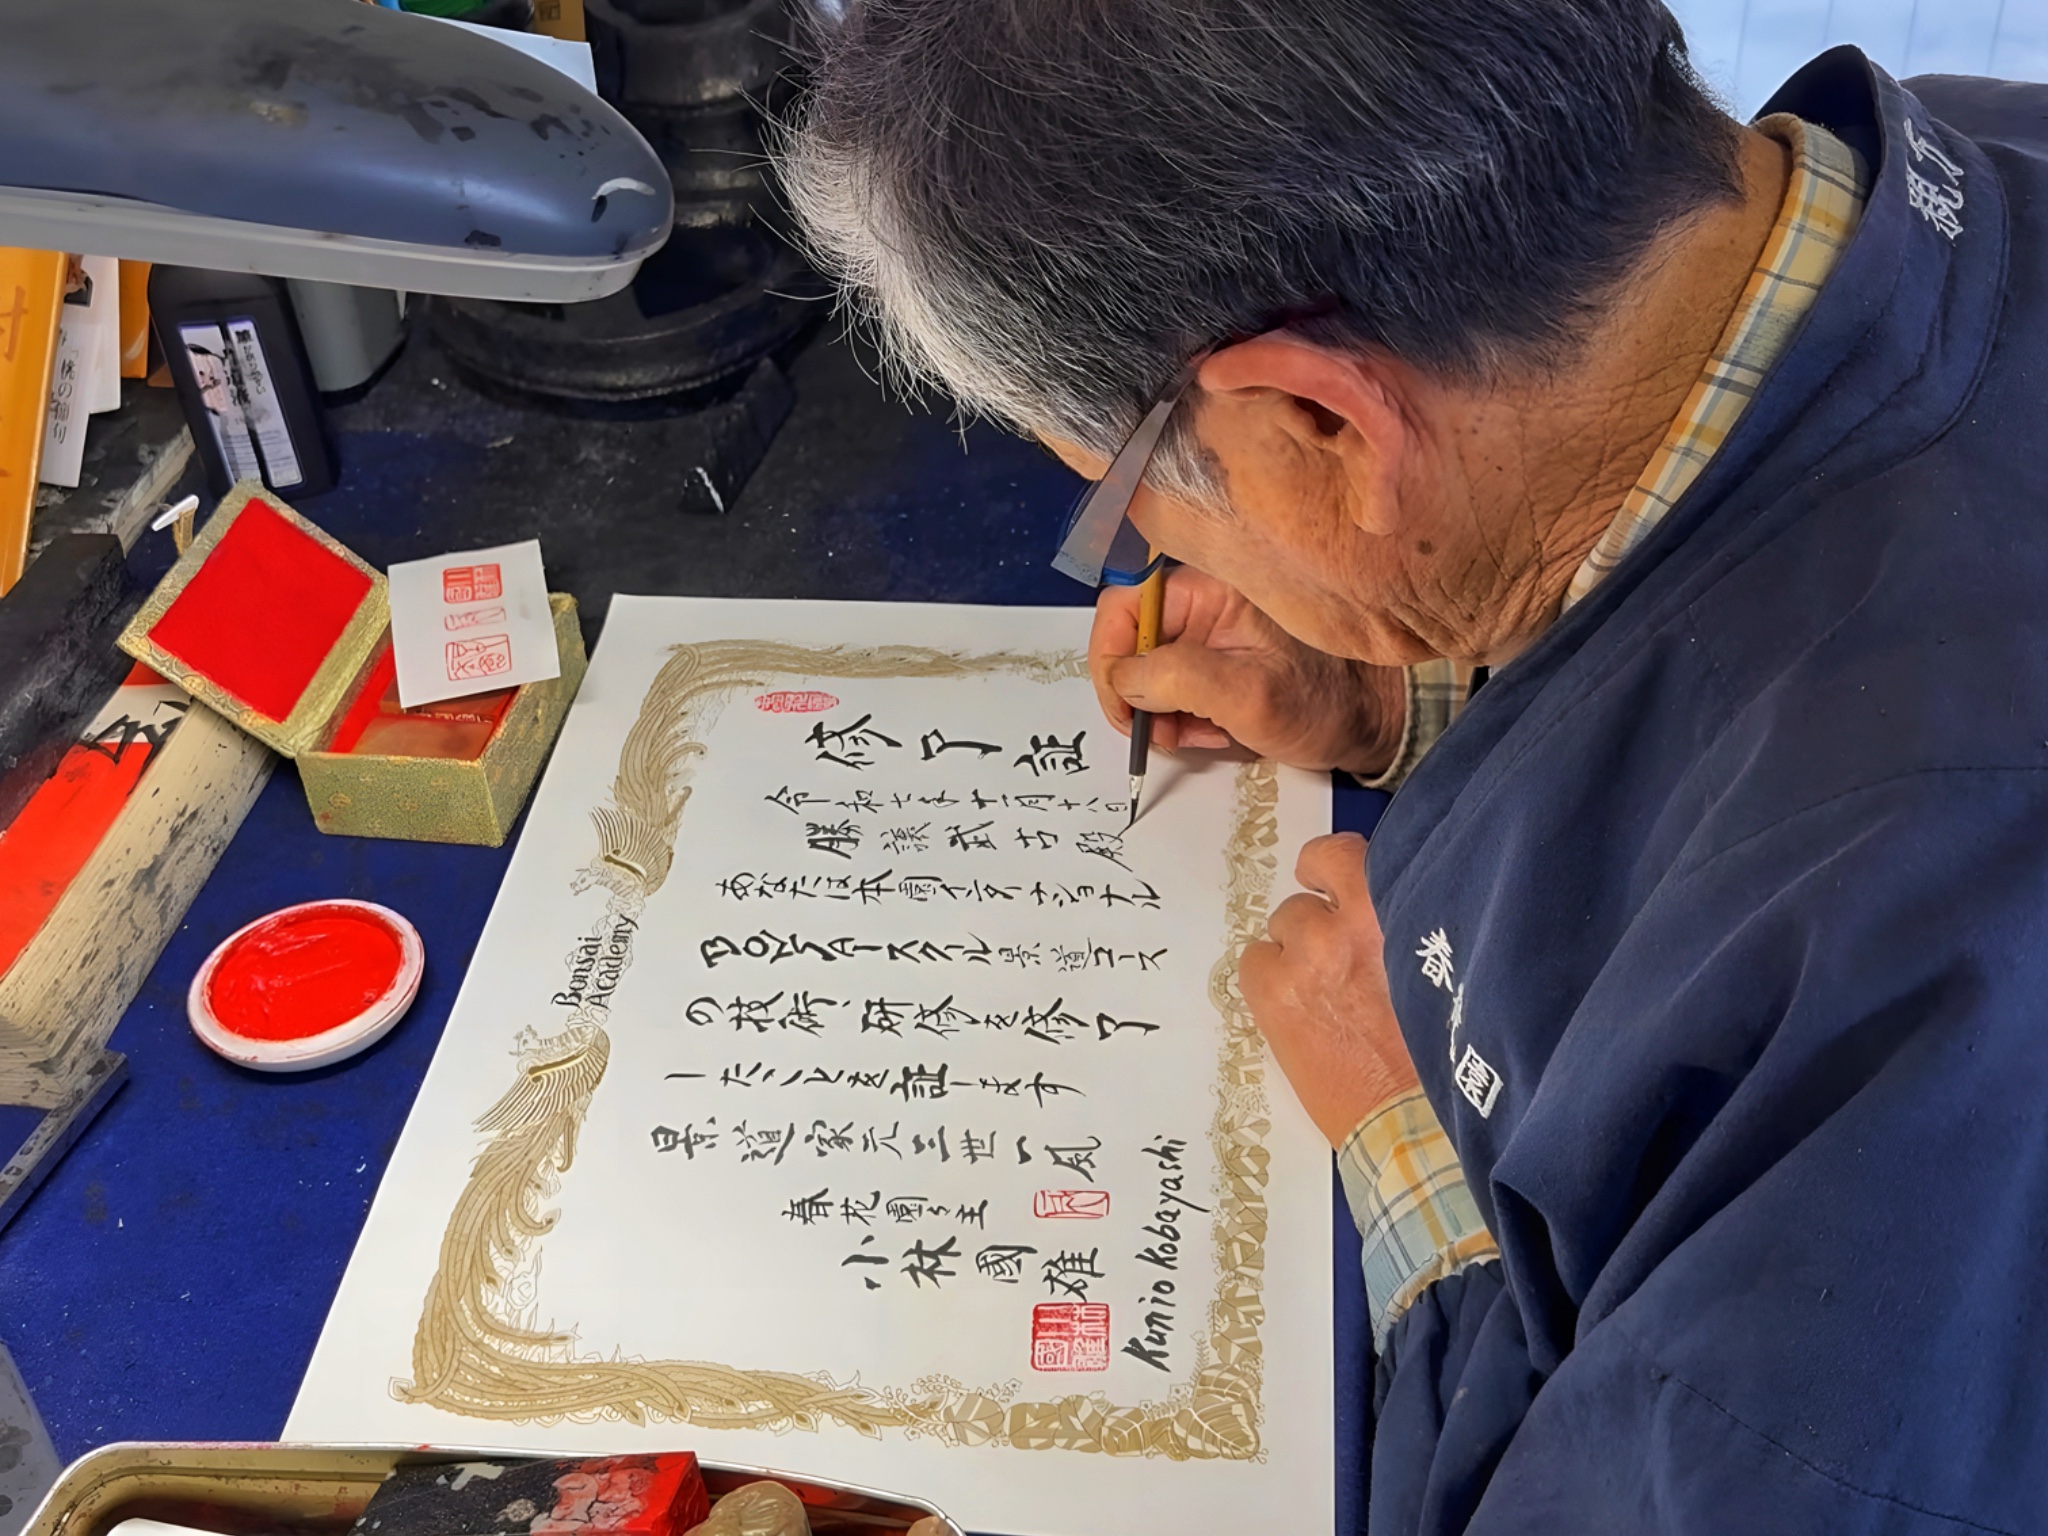 修了証
令和七年十一月十八日
勝議武吉殿
あなたは本園インターナショナル
BONSAIスクール景道コース
の技術、研修を修了
したことを証します
景道家元三世一風
春花園々主
小林國雄
Kunio Kobayashi
Bonsai
Academy
親方
春花園